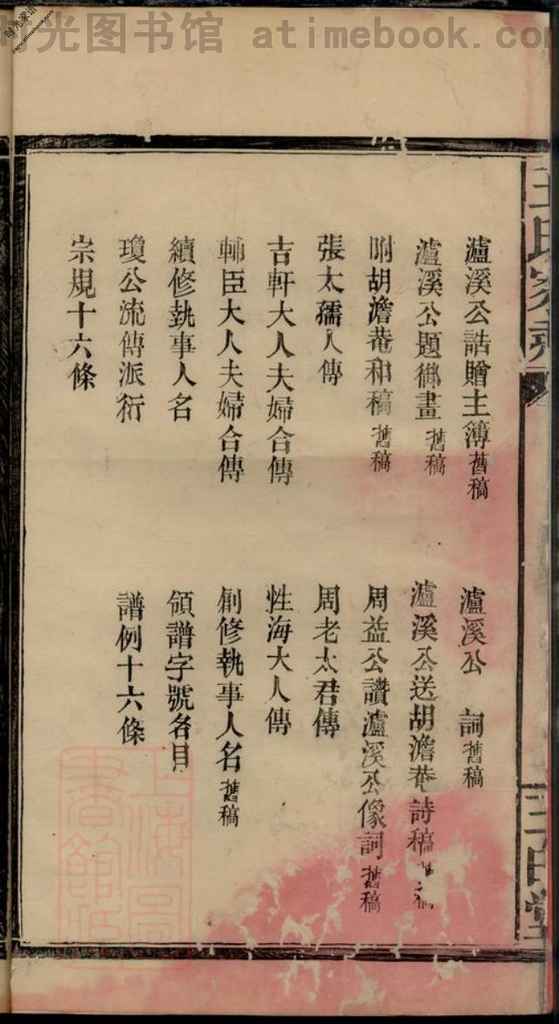 时光图书馆 atimebook.com
瀘溪公誥贈主簿 舊稿
瀘溪公 詞 舊稿
瀘溪公題御畫 舊稿
瀘溪公送胡澹菴詩稿 舊稿
附胡澹菴和稿 舊稿
周益公讚瀘溪公像詞 舊稿
張太孺人傳
周老太君傳
吉軒大人夫婦合傳
性海大人傳
輔臣大人夫婦合傳
創修執事人名 舊稿
續修執事人名
領譜字號名目
瓊公流傳派衍
譜例十六條
宗規十六條
王氏